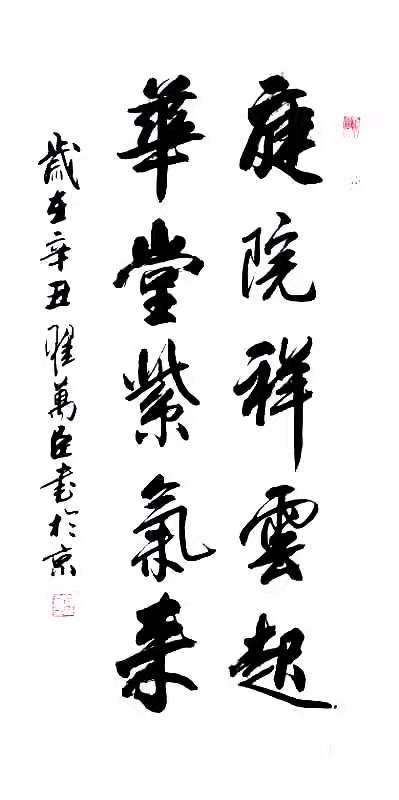 庭院祥雲起
華堂紫氣来
歲在辛丑翟萬臣書於京